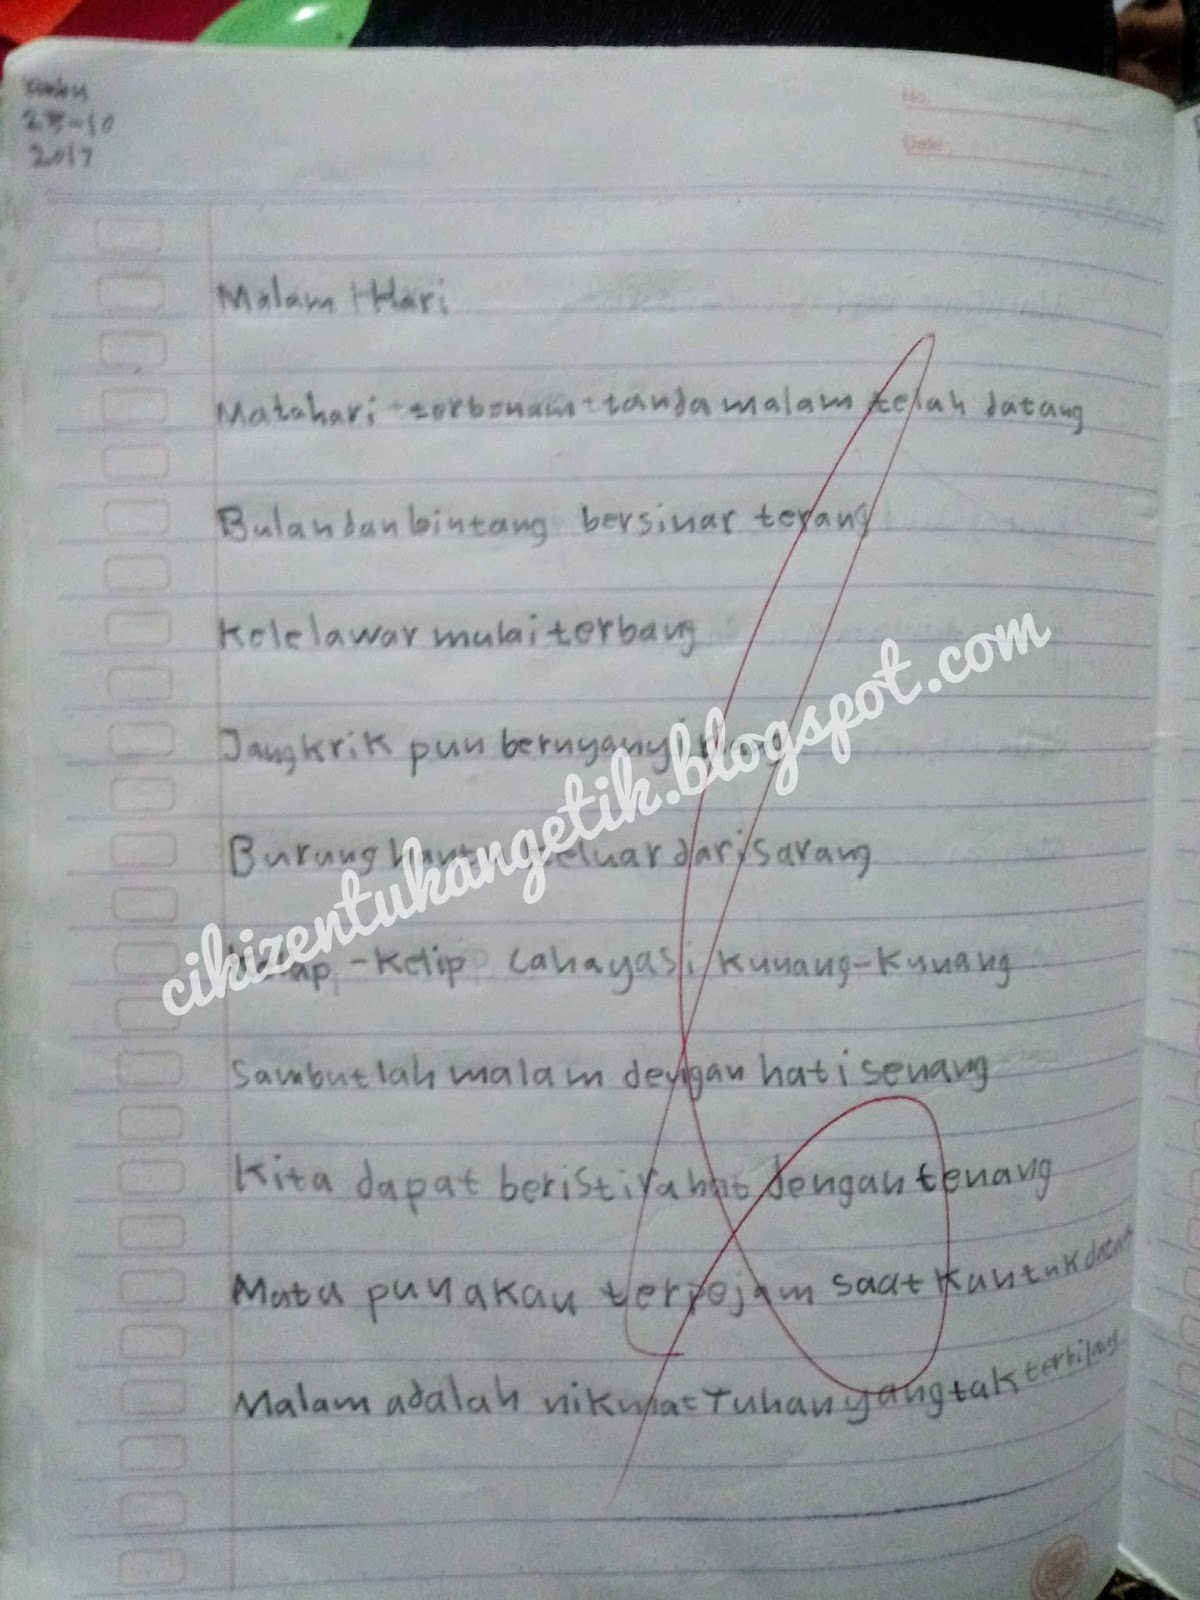 2017
No.
Date
Malam Hari
Matahari terbenam tanda malam telah datang
Bulan dan bintang bersinar terang
Kelelawar mulai terbang
Jangkrik pun bernyanyi
Burung hantu keluar dari sarang
-Kelip cahaya si kunang-kunang
Sambutlah malam dengan hati senang
Kita dapat beristirahat dengan tenang
Mata pun akan terpejam saat kantuk datang
Malam adalah nikmat Tuhan yang tak terbilang
cikizentukangetik.blogspot.com